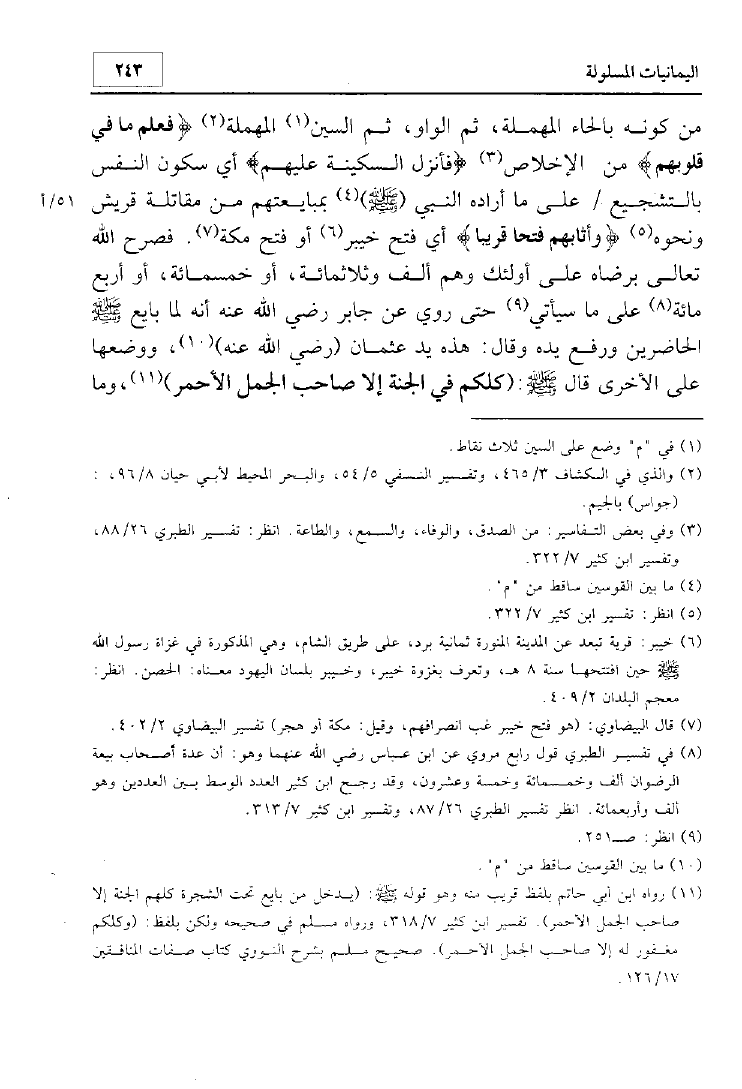 اليمانيات المسلولة ٢٤٣
من كونه بالحاء المهملة، ثم الواو، ثم السين(١) المهملة(٢) ﴿فعلم ما في
قلوبهم﴾ من الإخلاص(٣) ﴿فأنزل السكينة عليهم﴾ أي سكون النفس
بالتشجيع / على ما أراده النبي (ﷺ)(٤) بمبايعتهم من مقاتلة قريش ٥١/أ
ونحوه(٥) ﴿وأثابهم فتحا قريبا﴾ أي فتح خيبر(٦) أو فتح مكة(٧). فصرح الله
تعالى برضاه على أولئك وهم ألف وثلاثمائة، أو خمسمائة، أو أربع
مائة(٨) على ما سيأتي(٩) حتى روي عن جابر رضي الله عنه أنه لما بايع ﷺ
الحاضرين ورفع يده وقال: هذه يد عثمان (رضي الله عنه)(١٠)، ووضعها
على الأخرى قال ﷺ: (كلكم في الجنة إلا صاحب الجمل الأحمر)(١١)، وما
(١) في "م" وضع على السين ثلاث نقاط.
(٢) والذي في الكشاف ٤٦٥/٣، وتفسير النسفي ٥٤/٥، والبحر المحيط لأبي حيان ٩٦/٨، :
(جواس) بالجيم.
(٣) وفي بعض التفاسير: من الصدق، والوفاء، والسمع، والطاعة. انظر: تفسير الطبري ٨٨/٢٦،
وتفسير ابن كثير ٣٢٢/٧.
(٤) ما بين القوسين ساقط من "م".
(٥) انظر: تفسير ابن كثير ٣٢٢/٧.
(٦) خيبر: قرية تبعد عن المدينة المنورة ثمانية برد، على طريق الشام، وهي المذكورة في غزاة رسول الله
ﷺ حين افتتحها سنة ٨ هـ، وتعرف بغزوة خيبر، وخيبر بلسان اليهود معناه: الحصن. انظر:
معجم البلدان ٤٠٩/٢.
(٧) قال البيضاوي: (هو فتح خيبر غب انصرافهم، وقيل: مكة أو هجر) تفسير البيضاوي ٤٠٢/٢.
(٨) في تفسير الطبري قول رابع مروي عن ابن عباس رضي الله عنهما وهو: أن عدة أصحاب بيعة
الرضوان ألف وخمسمائة وخمسة وعشرون، وقد رجح ابن كثير العدد الوسط بين العددين وهو
ألف وأربعمائة. انظر تفسير الطبري ٨٧/٢٦، وتفسير ابن كثير ٣١٣/٧.
(٩) انظر: صـ٢٥١.
(١٠) ما بين القوسين ساقط من "م".
(١١) رواه ابن أبي حاتم بلفظ قريب منه وهو قوله ﷺ: (يدخل من بايع تحت الشجرة كلهم الجنة إلا
صاحب الجمل الأحمر). تفسير ابن كثير ٣١٨/٧، ورواه مسلم في صحيحه ولكن بلفظ: (وكلكم
مغفور له إلا صاحب الجمل الأحمر). صحيح مسلم بشرح النووي كتاب صفات المنافقين
١٢٦/١٧.